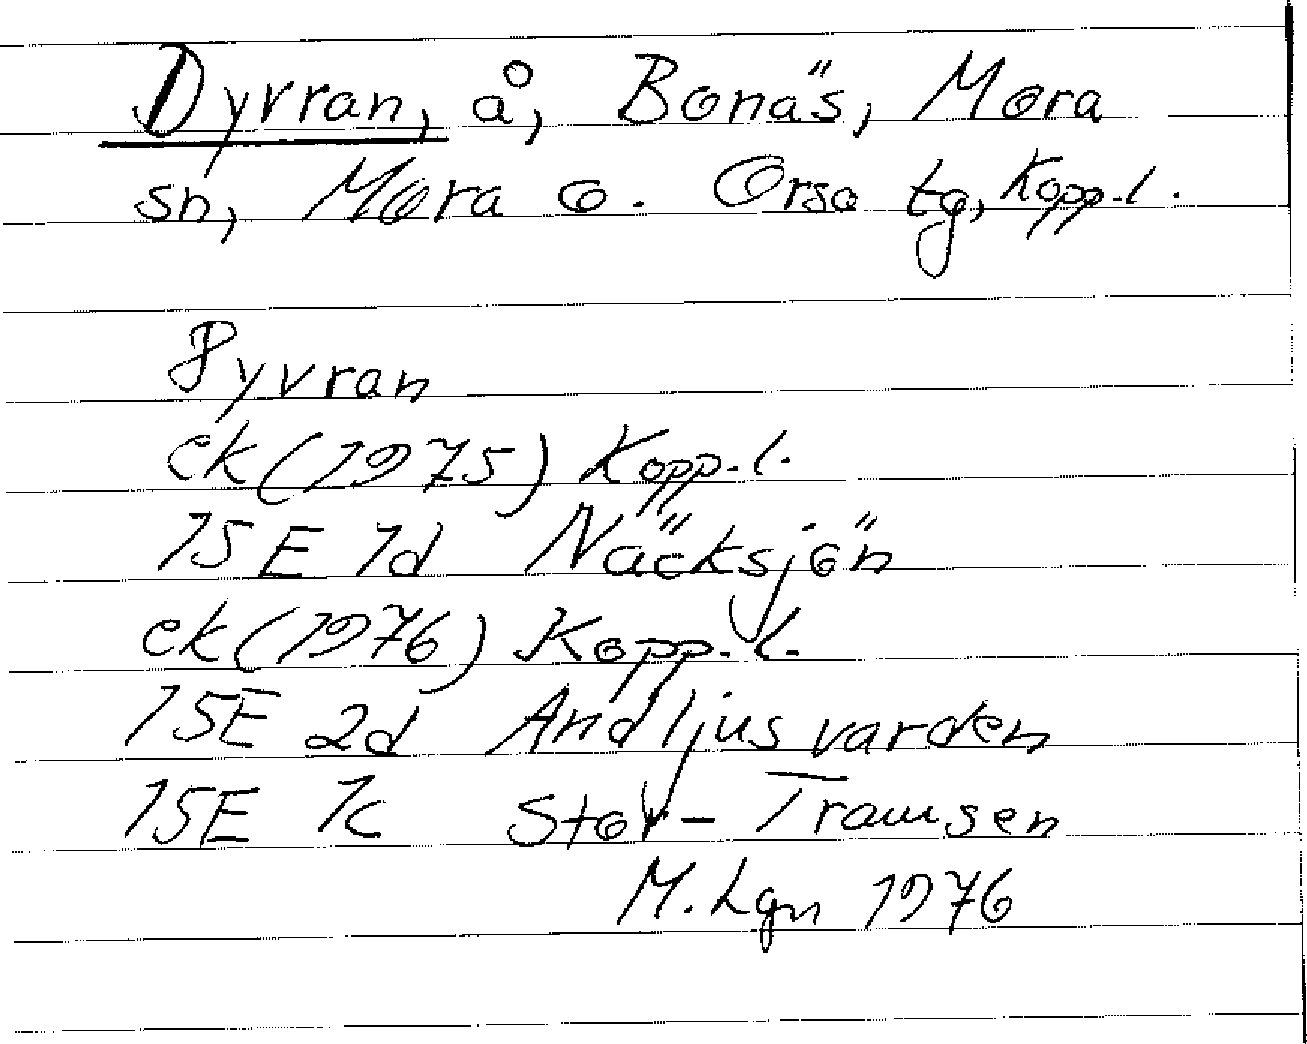 Dyvran, å, Bonäs, Mora
sn, Mora o. Orsa tg, Kopp.l.
Pyvran
ek(1975) Kopp.l.
15E 1d Näcksjön
ek(1976) Kopp.l.
15E 2d Andljusvarden
15E 1c Stor-Tramsen
M. Lgn 1976